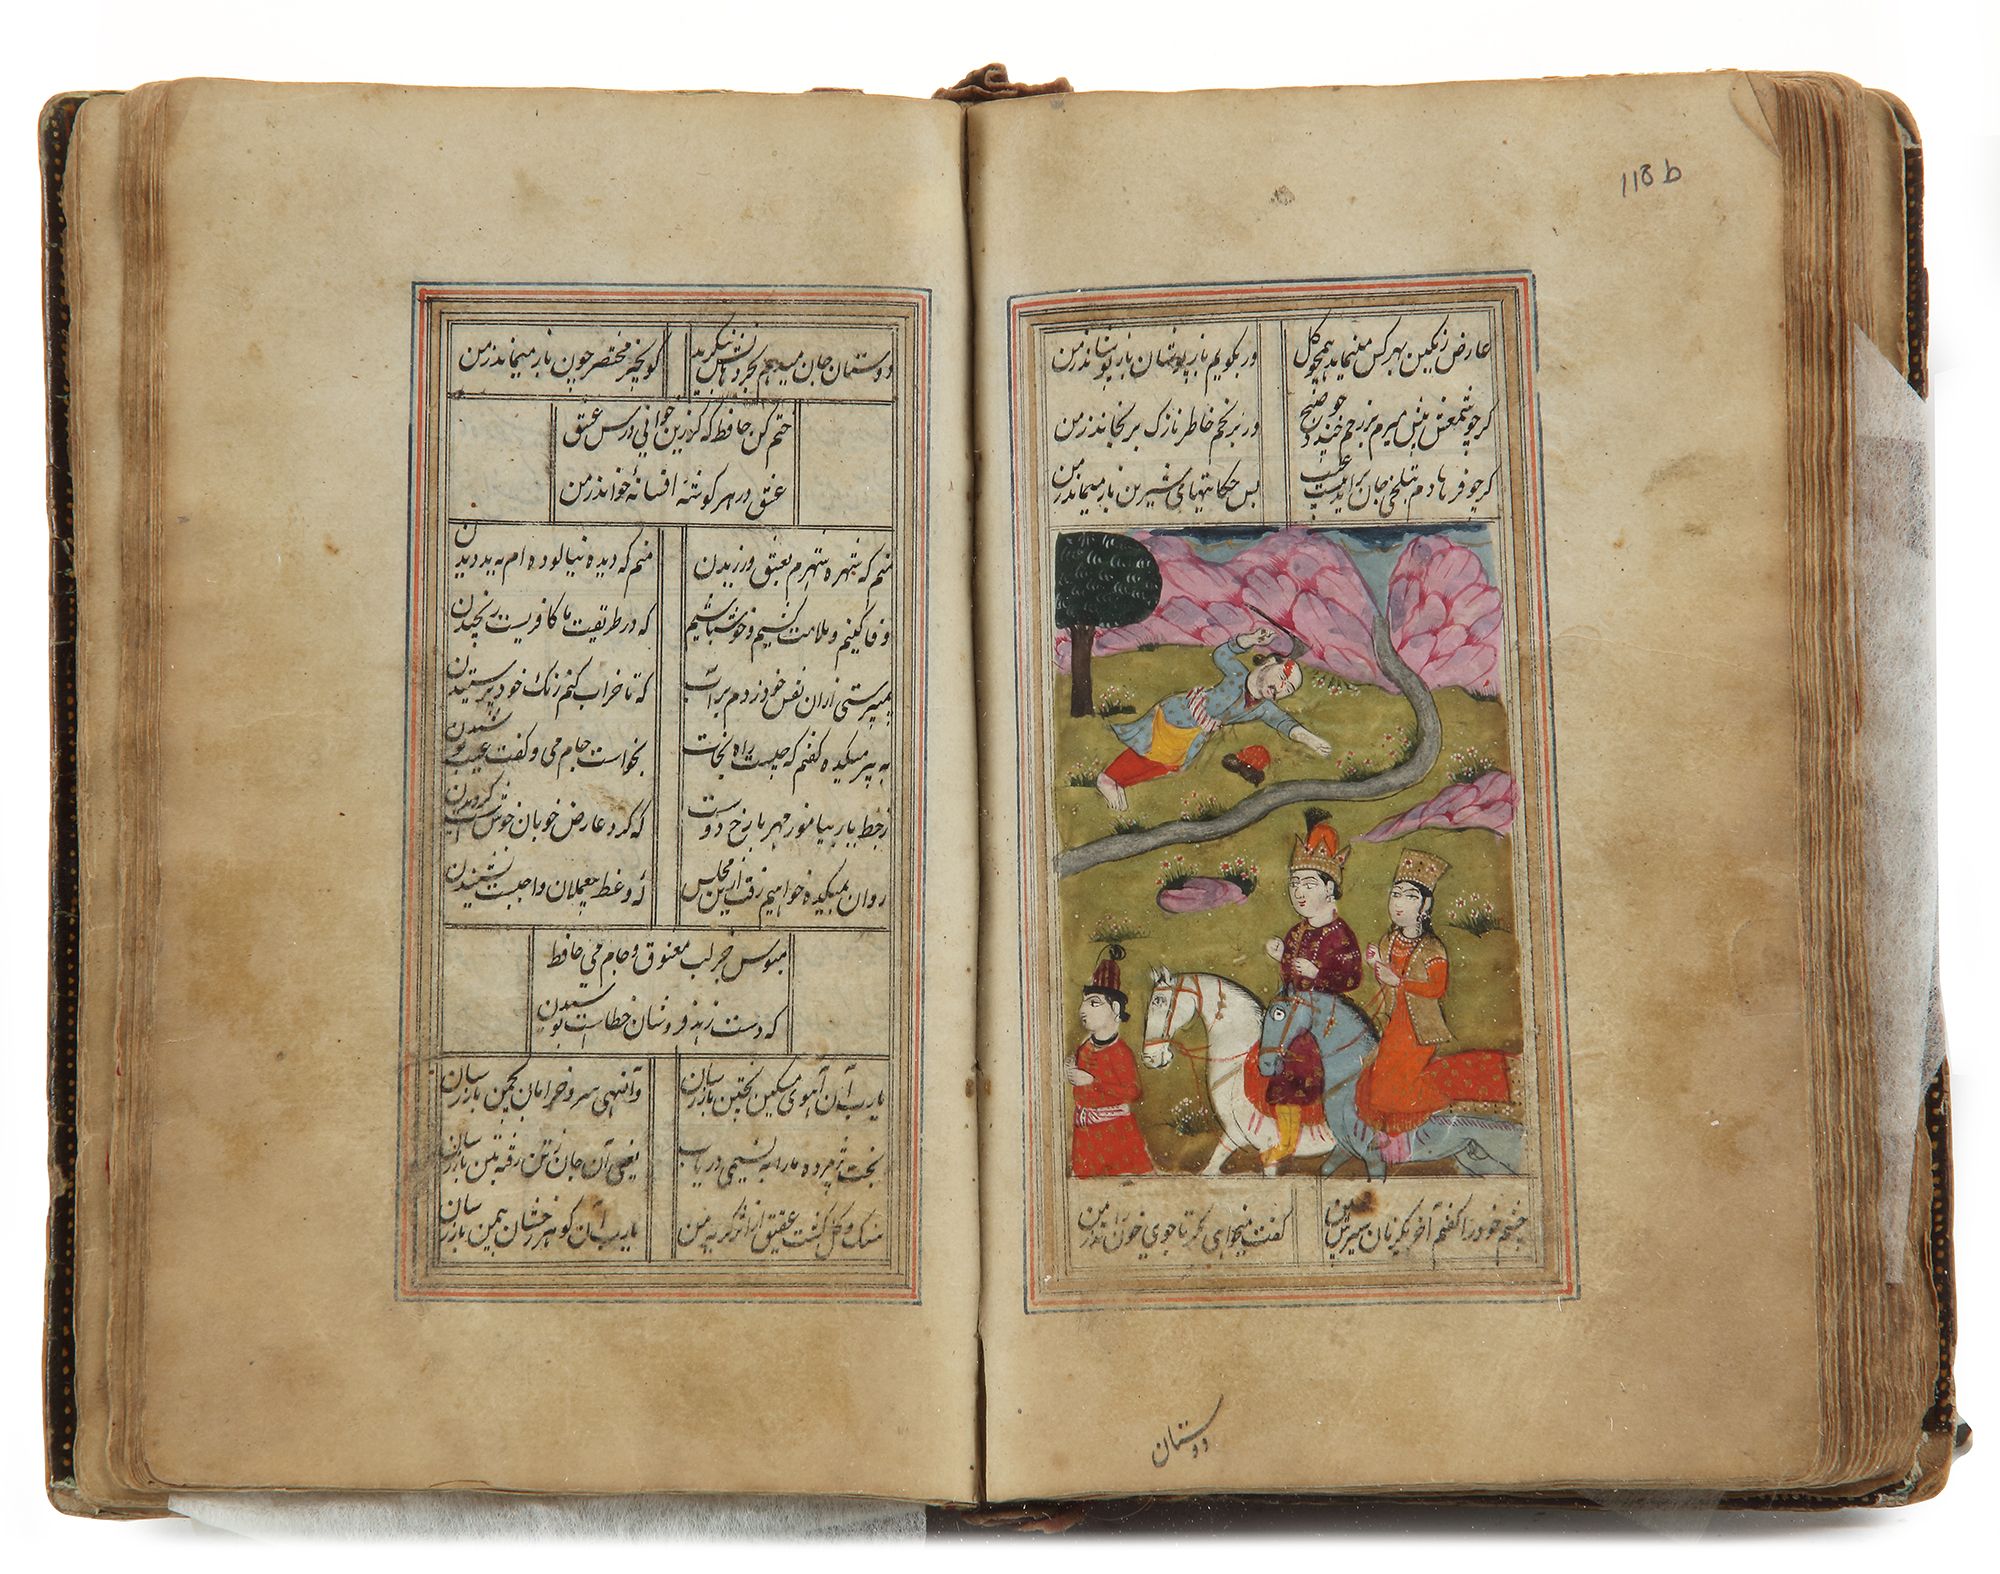 118 b
عارض رنگین بهر کس مینماید همچو گل
ور بگویم باز پوشان باز پوشاند ز من
گر چو شمعش پیش میرم بر رخم خندد چو صبح
ور برنجم خاطر نازک برنجاند ز من
گر چو فرهادم بتلخی جان براید عیب نیست
بس حکایتهای شیرین باز میماند ز من
چشم خود را گفتم آخر یکنظر سیرش ببین
گفت میخواهی مگر تا جوی خون راند ز من
دوستان
دوستان جان میدهم بخردهاش ننگرید
کو بچیز مختصر چون باز میماند ز من
ختم کن حافظ که گر زین خوانی درس عشق
عشق در هر گوشهٔ افسانهٔ خواند ز من
منم که شهره شهرم بعشق ورزیدن
منم که دیده نیالوده ام به بد دیدن
وفا کنیم و ملامت کشیم و خوش باشیم
که در طریقت ما کافریست رنجیدن
بمی پرستی از ان نقش خود زدم بر آب
که تا خراب کنم نقش خود پرستیدن
به پیر میکده گفتم که چیست راه نجات
بخواست جام می و گفت عیب پوشیدن
ز خط یار بیاموز مهر با رخ دوست
که گرد عارض خوبان خوش است گردیدن
روان بمیکده خواهیم رفت ازین مجلس
که وعظ بیعملان واجبست نشنیدن
مبوس جز لب معشوق و جام می حافظ
که دست زهد فروشان خطاست بوسیدن
یارب آن آهوی مشکین بختن باز رسان
و آن سهی سرو خرامان بچمن باز رسان
بخت پژمرده ما را به نسیمی دریاب
یعنی آن جان ز تن رفته بتن باز رسان
سنگ و گل گشت عقیق از اثر گریه من
یارب آن گوهر رخشان بیمن باز رسان